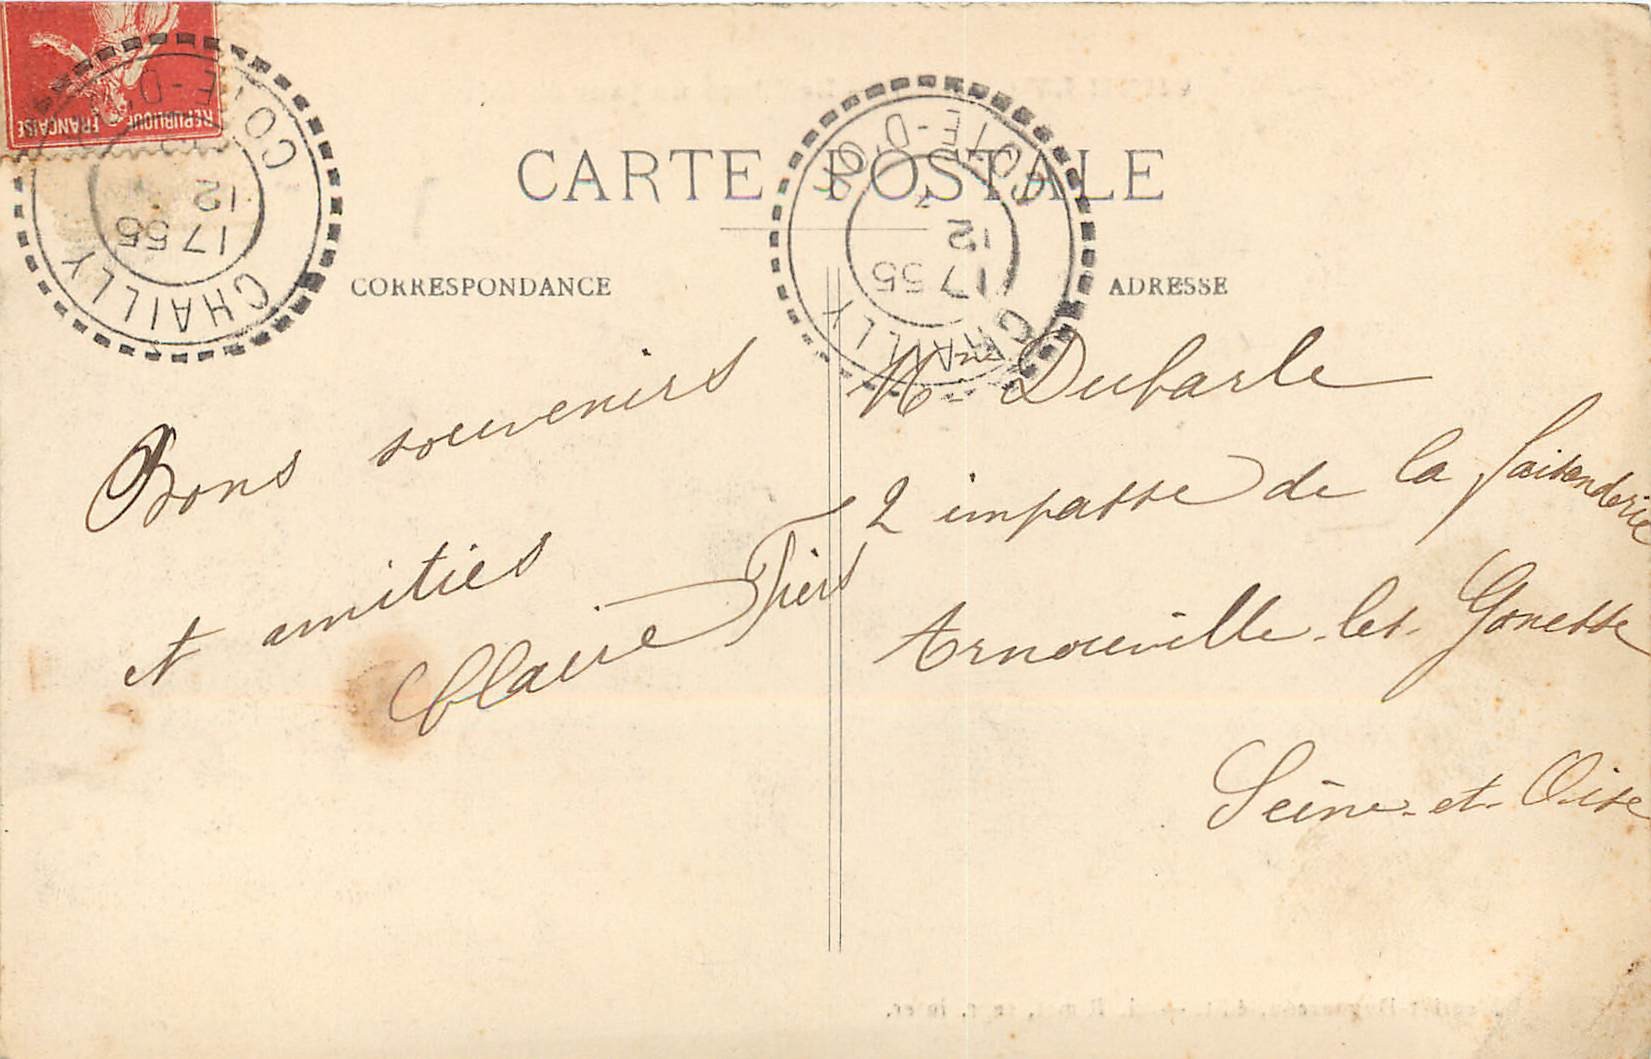 RÉPUBLIQUE FRANÇAISE
CHAILLY
17 55
12
COTE-D'OR
CARTE POSTALE
CHAILLY
17 55
12
COTE-D'OR
CORRESPONDANCE
ADRESSE
Bons souvenirs
et amitiés
Claire Thiers
Mr Dubarle
2 impasse de la faisanderie
Arnouville-les-Gonesse
Seine-et-Oise